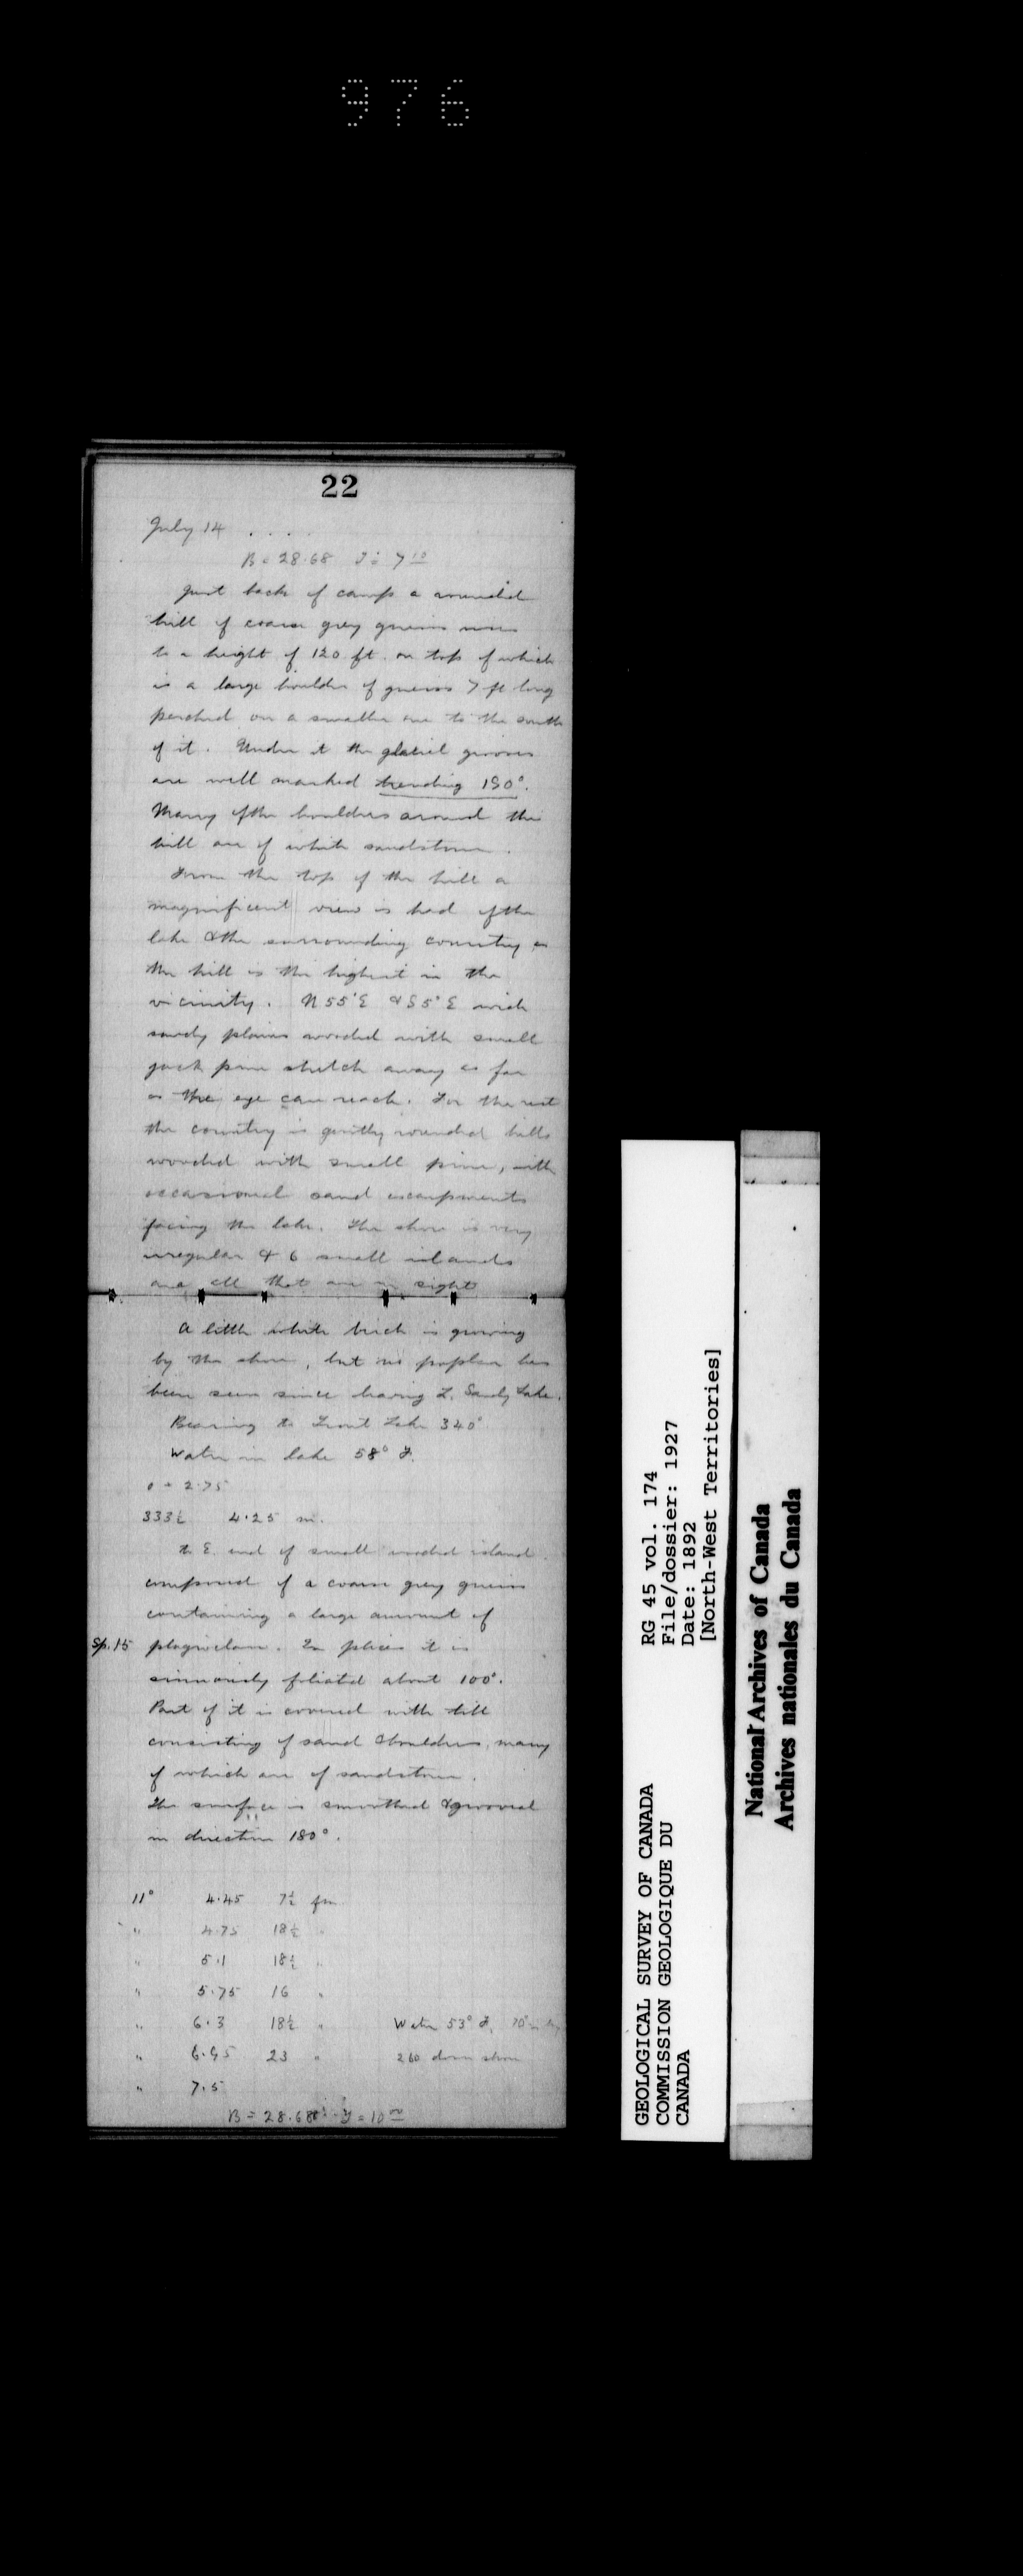 976
22
July 14 . . . .
B = 28.68 T = 7 10
Just back of camp a rounded
hill of coarse grey gneiss rises
to a height of 120 ft. on top of which
is a large boulder of gneiss 7 ft long
perched on a smaller one to the south
of it. Under it the glacial grooves
are well marked trending 190°.
Many of the boulders around the
hill are of white sandstone.
From the top of the hill a
magnificent view is had of the
lake & the surrounding country as
the hill is the highest in the
vicinity. N55°E & S5°E wide
sandy plains wooded with small
jack pine stretch away as far
as the eye can reach. For the rest
the country is gently rounded hills
wooded with small pine, with
occasional sand escarpments
facing the lake. The shore is very
irregular & 6 small islands
are all that are in sight
A little white birch is growing
by the shore, but no poplar has
been seen since leaving L. Sandy Lake.
Bearing to Trout Lake 340°.
Water in lake 58° F.
0 = 2.75
333½ 4.25 m.
to E. end of small wooded island
composed of a coarse grey gneiss
containing a large amount of
Sp. 15 plagioclase. In places it is
sinuously foliated about 100°.
Part of it is covered with till
consisting of sand & boulders, many
of which are of sandstone.
The surface is smoothed & grooved
in direction 180°.
11° 4.45 7½ fm
" 4.75 18½ "
" 5.1 18½ "
" 5.75 16 "
" 6.3 18½ " Water 53° F.
" 6.95 23 " 260 down shore
" 7.5
B = 28.68 T = 10 00
GEOLOGICAL SURVEY OF CANADA
COMMISSION GEOLOGIQUE DU
CANADA
RG 45 vol. 174
File/dossier: 1927
Date: 1892
[North-West Territories]
National Archives of Canada
Archives nationales du Canada